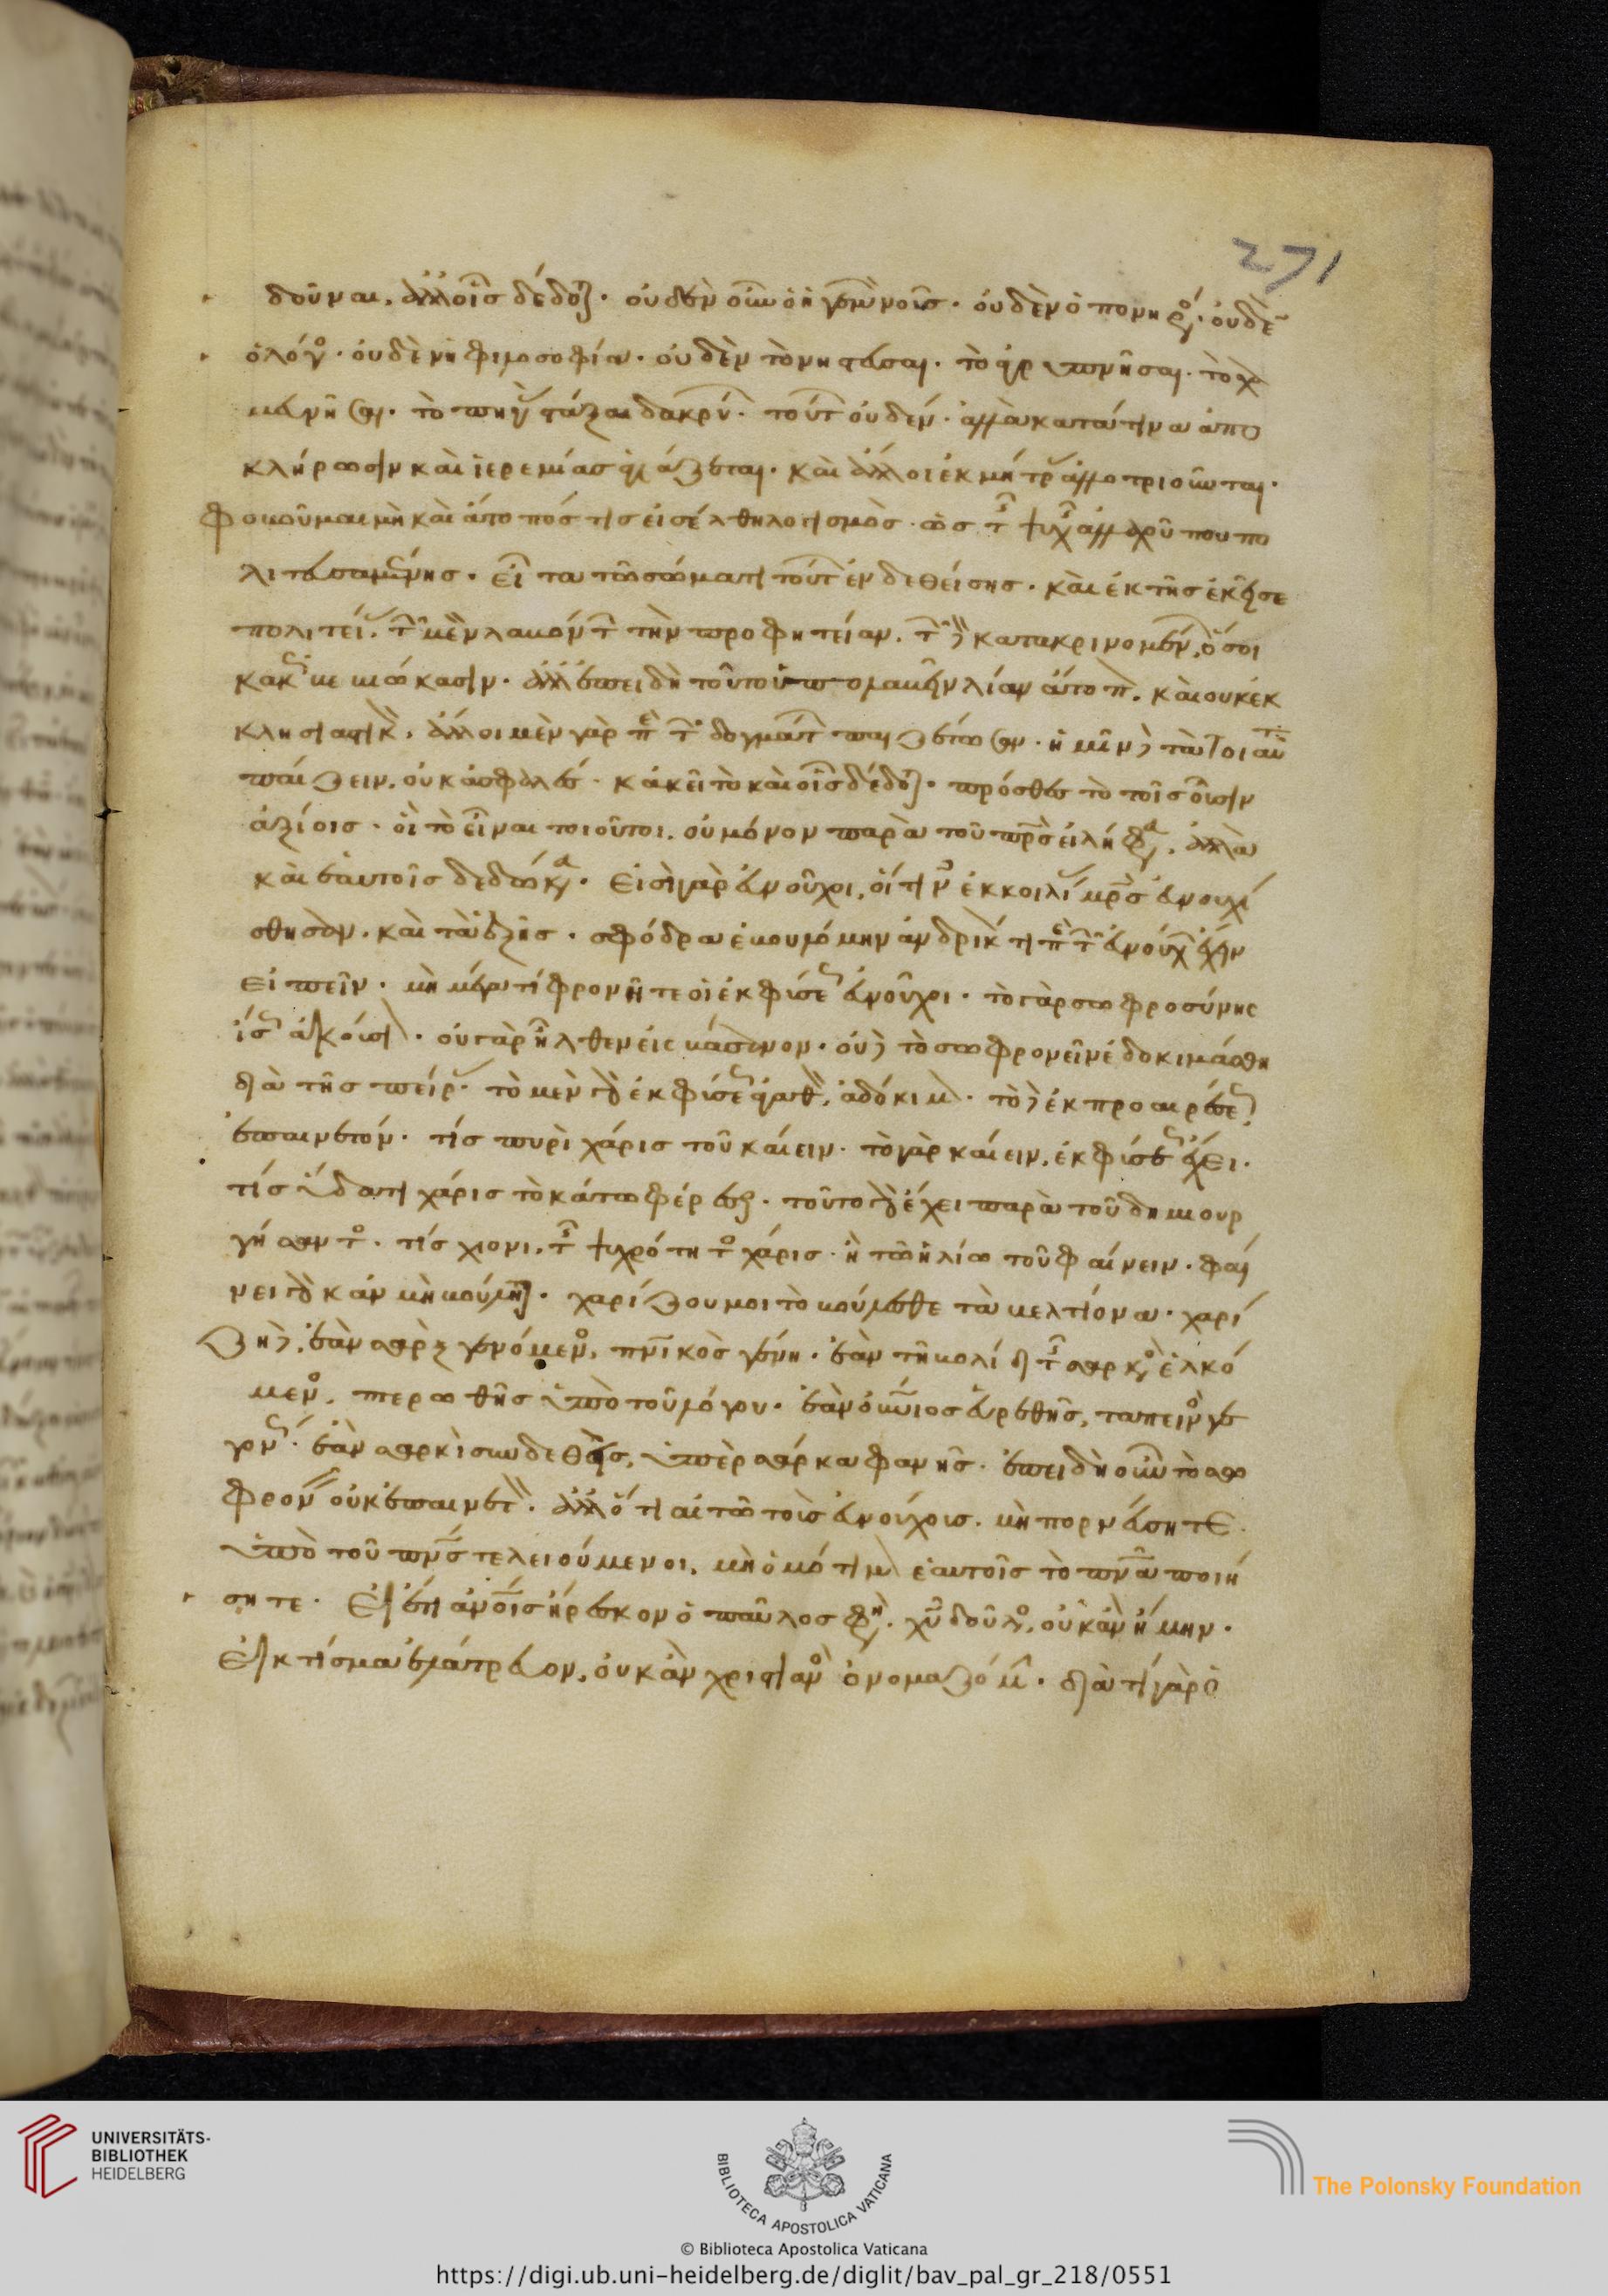 δοῦναι. ἀλλ' οἷς δέδοται. οὐδὲν οὖν ὁ ἡγεμὼν νοῦς. οὐδὲν ὁ πόνος. οὐδὲν
ὁ λόγος. οὐδὲν ἡ φιλοσοφία. οὐδὲν τὸ νηστεῦσαι. τὸ ἀγρυπνῆσαι. τὸ χα
μευνῆσαι. τὸ πηγὰς στάξαι δακρύων. τούτων οὐδέν. ἀλλὰ κατά τινα ἀπο
κλήρωσιν καὶ ἱερεμίας ἁγιάζεται. καὶ ἄλλοι ἐκ μήτρας ἀλλοτριοῦνται.
φοβοῦμαι μὴ καὶ ἄτοπός τις εἰσέλθη λογισμὸς. ὡς τῆς ψυχῆς ἀλλαχοῦ που πο
λιτευσαμένης. εἶτα τῶ σώματι τούτω ἐνδεθείσης. καὶ ἐκ τῆς ἐκεῖσε
πολιτείας. τῶν μὲν λαμβανόντων τὴν προφητείαν. τῶν δὲ κατακρινομένων, ὅσοι
κακῶς βεβιώκασιν. ἀλλ' ἐπειδὴ τοῦτο ὑπολαβεῖν λίαν ἄτοπον. καὶ οὐκ ἐκ
κλησιαστικὸν. ἄλλοι μὲν γὰρ περὶ τῶν δογμάτων παιζέτωσαν. ἡμῖν δὲ τὰ τοιαῦτα
παίζειν. οὐκ ἀσφαλές. κἀκεῖ τὸ καὶ οἷς δέδοται. πρόσθες τὸ τοῖς οὖσιν
ἀξίοις. οἳ τὸ εἶναι τοιοῦτοι. οὐ μόνον παρὰ τοῦ πρς εἰλήφασιν. ἀλλὰ
καὶ ἑαυτοῖς δεδώκασιν. εἰσὶ γὰρ εὐνοῦχοι, οἵτινες ἐκ κοιλίας μρς εὐνουχί
σθησαν. καὶ τὰ ἑξῆς. σφόδρα ἐβουλόμην ἀνδρικόν τι περὶ τῶν εὐνούχων ἔχειν
εἰπεῖν. μὴ μέγα τί φρονῆτε οἱ ἐκ φύσεως εὐνοῦχοι. τὸ γὰρ σωφροσύνης
ἴσως ἀκούσιον. οὐ γὰρ ἦλθεν εἰς βάσανον. οὐδὲ τὸ σωφρονεῖν ἐδοκιμάσθη
διὰ τῆς πείρας. τὸ μὲν γὰρ ἐκ φύσεως ἀγαθὸν, ἀδόκιμον. τὸ δὲ ἐκ προαιρέσεως,
ἐπαινετόν. τίς πυρὶ χάρις τοῦ καίειν. τὸ γὰρ καίειν, ἐκ φύσεως ἔχει.
τίς ὕδατι χάρις τὸ κάτω φέρεσθαι. τοῦτο γὰρ ἔχει παρὰ τοῦ δημιουρ
γήσαντος. τίς χιόνι. τῆς ψυχρότητος χάρις. ἢ τῶ ἡλίω τοῦ φαίνειν. φαί
νει γὰρ κἂν μὴ βούληται. χαρίζου μοι τὸ βούλεσθαι τὰ βελτίονα. χαρί
ζη δὲ, ἐὰν σὰρξ γενόμενος. πνικὸς γένη. ἐὰν τῆ μολιβδίδι τῆς σαρκὸς ἑλκό
μενος. πτερωθῆς ὑπὸ τοῦ λόγου. ἐὰν οὐνιος εὑρεθῆς, ταπεινὸς γε
γονώς. ἐὰν σαρκὶ συνδεθεὶς, ὑπὲρ σάρκα φανῆς. ἐπειδὴ οὖν τὸ σω
φρονεῖν οὐκ ἐπαινετὸν. ἄλλό τι αἰτῶ τοὺς εὐνούχους. μὴ πορνεύσητε
ὑπὸ τοῦ πνς τελειούμενοι, μὴ ὁμότιμον ἑαυτοῖς τὸ πνα ποιή
σητε. εἰ ἔτι ἀνοις ἤρεσκον ὁ παῦλος φησὶν. χυ δοῦλος, οὐκ ἂν ἤμην.
εἰ κτίσμα ἐλάτρευον, οὐκ ἂν χριστιανὸς ὀνομαζόμην. διὰ τί γὰρ ὁ
271
UNIVERSITÄTS-
BIBLIOTHEK
HEIDELBERG
BIBLIOTECA APOSTOLICA VATICANA
The Polonsky Foundation
© Biblioteca Apostolica Vaticana
https://digi.ub.uni-heidelberg.de/diglit/bav_pal_gr_218/0551